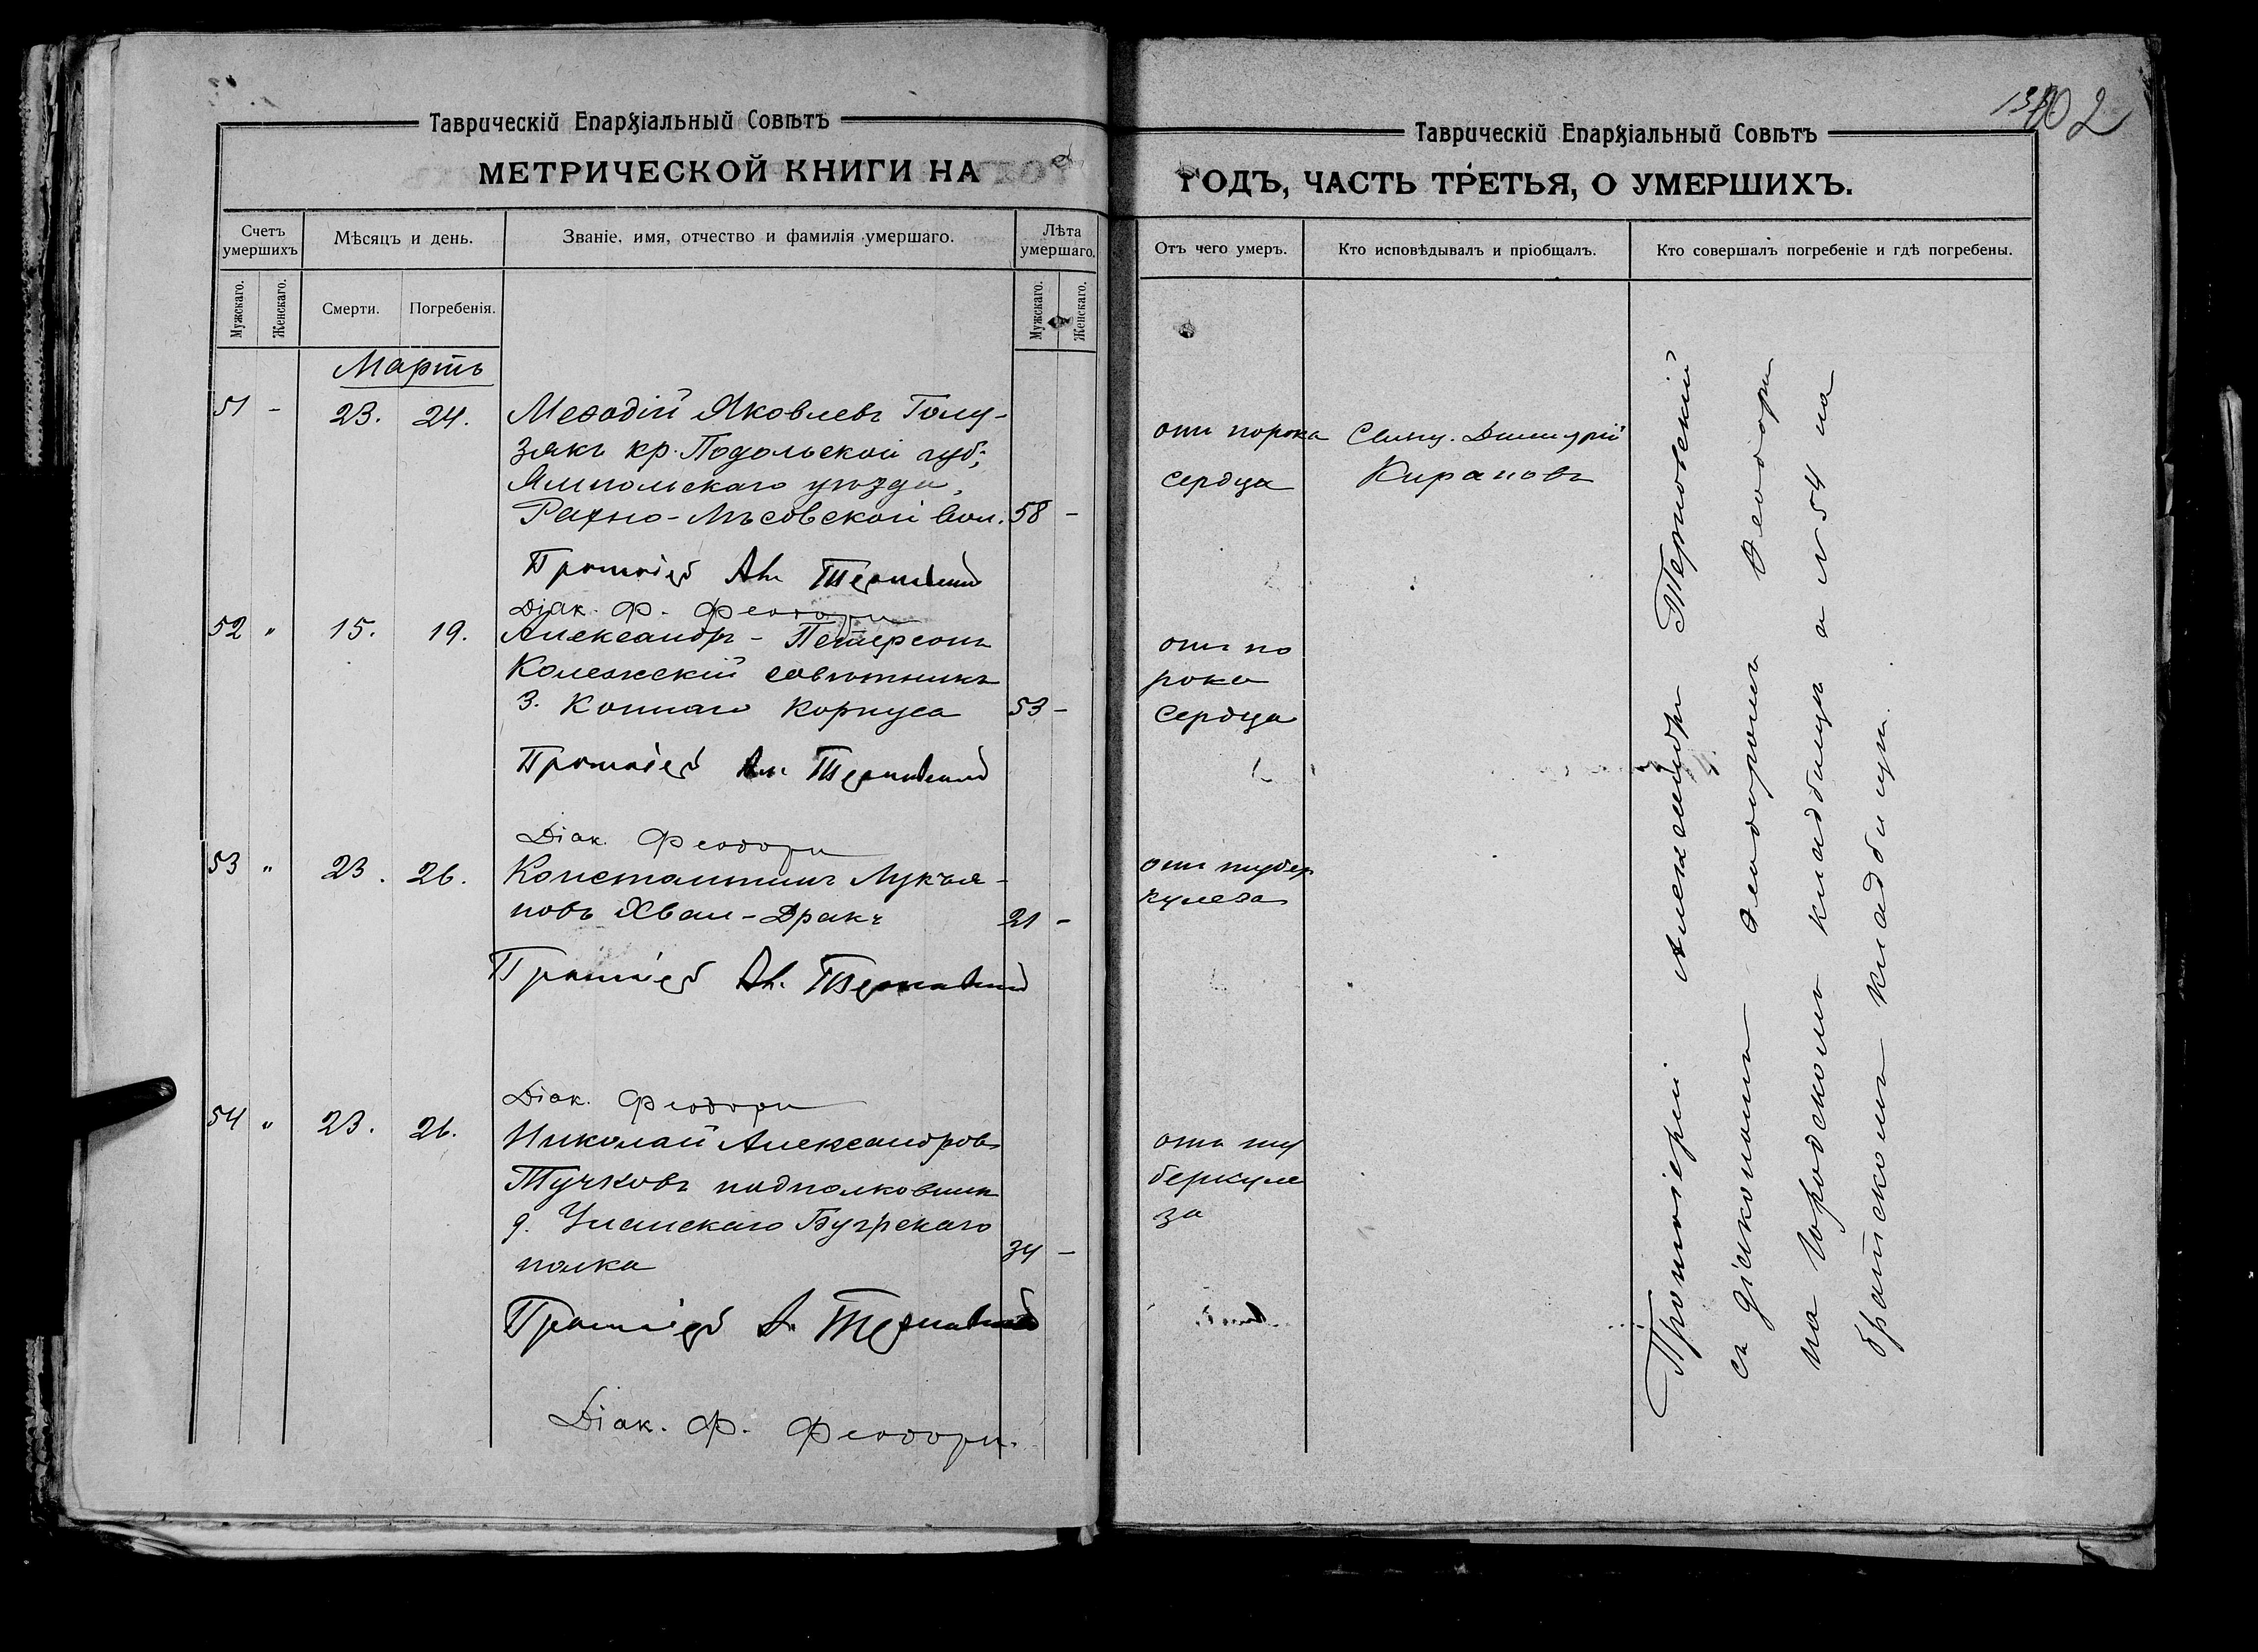 Таврическій Епархіальный Совѣтъ
МЕТРИЧЕСКОЙ КНИГИ НА
Счетъ умершихъ
Мѣсяцъ и день.
Званіе, имя, отчество и фамилія умершаго.
Лѣта умершаго.
Мужскаго.
Женскаго.
Смерти.
Погребенія.
Мужскаго.
Женскаго.
Мартъ
51 - 23. 24. Меѳодій Яковлевъ Голу-
зякъ кр. Подольской губ.,
Ямпольскаго уѣзда,
Рахно-Лѣсовской вол. 58 -
Протоіерей Ал. Терновскій
Діак. Ф. Феодори
52 " 15. 19. Александръ - Петерсонъ
Колежскій совѣтникъ
3. Коннаго Корпуса 53 -
Протоіерей Ал. Терновскій
Діак. Феодори
53 " 23. 26. Константинъ Лукъя-
новъ Хван-Дракъ 21 -
Протоіерей Ал. Терновскій
Діак. Феодори
54 " 23. 26. Николай Александровъ
Тучковъ подполковникъ
9. Уланскаго Бугрскаго
полка 34 -
Протоіерей А. Терновскій
Діак. Ф. Феодори.
Таврическій Епархіальный Совѣтъ
ГОДЪ, ЧАСТЬ ТРЕТЬЯ, О УМЕРШИХЪ.
Отъ чего умеръ.
Кто исповѣдывалъ и пріобщалъ.
Кто совершалъ погребеніе и гдѣ погребены.
отъ порока
сердца
Свящ. Димитрій
Кирановъ
отъ по
рока
сердца
отъ тубер
кулеза
отъ ту
беркуле
за
Протоіерей Александръ Терновскій
съ діакономъ Ѳеодоромъ Ѳеодори
на городскомъ кладбищѣ а № 54 на
братскомъ кладбищѣ.